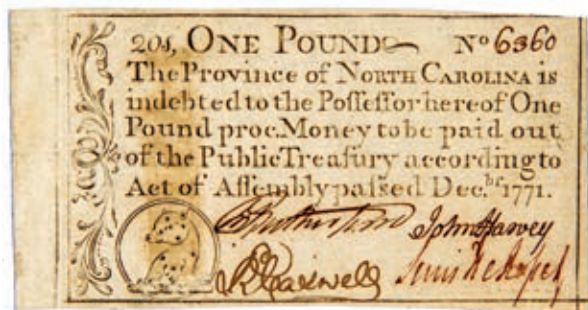 20s, ONE POUND No 6360
The Province of NORTH CAROLINA is
indebted to the Poſſeſſor hereof One
Pound proc. Money to be paid out
of the Public Treaſury according to
Act of Aſſembly paſſed Dec.br 1771.
Rutherfurd John Harvey
R Caswell Lewis De Rosset